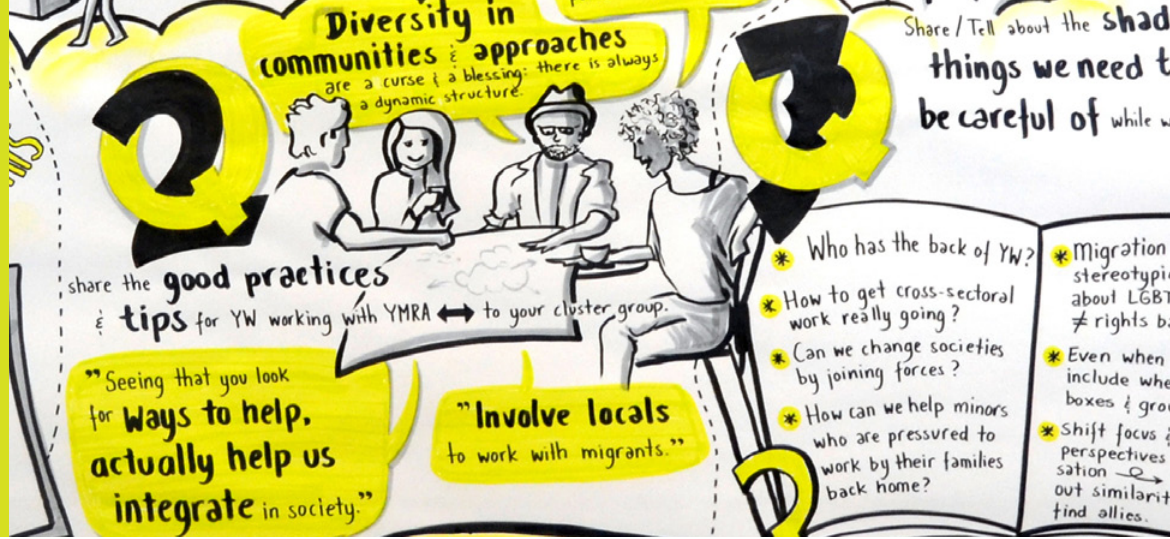 Diversity in
communities & approaches
are a curse & a blessing: there is always
a dynamic structure.
2
share the good practices
& tips for YW working with YMRA ↔ to your cluster group.
"Seeing that you look
for ways to help,
actually help us
integrate in society."
"Involve locals
to work with migrants."
3
Share/Tell about the shad
things we need t
be careful of while w
* Who has the back of YW?
* How to get cross-sectoral
work really going?
* Can we change societies
by joining forces?
* How can we help minors
who are pressured to
work by their families
back home?
* Migration
stereotypi
about LGBT
≠ rights b
* Even when
include whe
boxes & gro
* Shift focus &
perspectives
sation
out similarit
find allies.